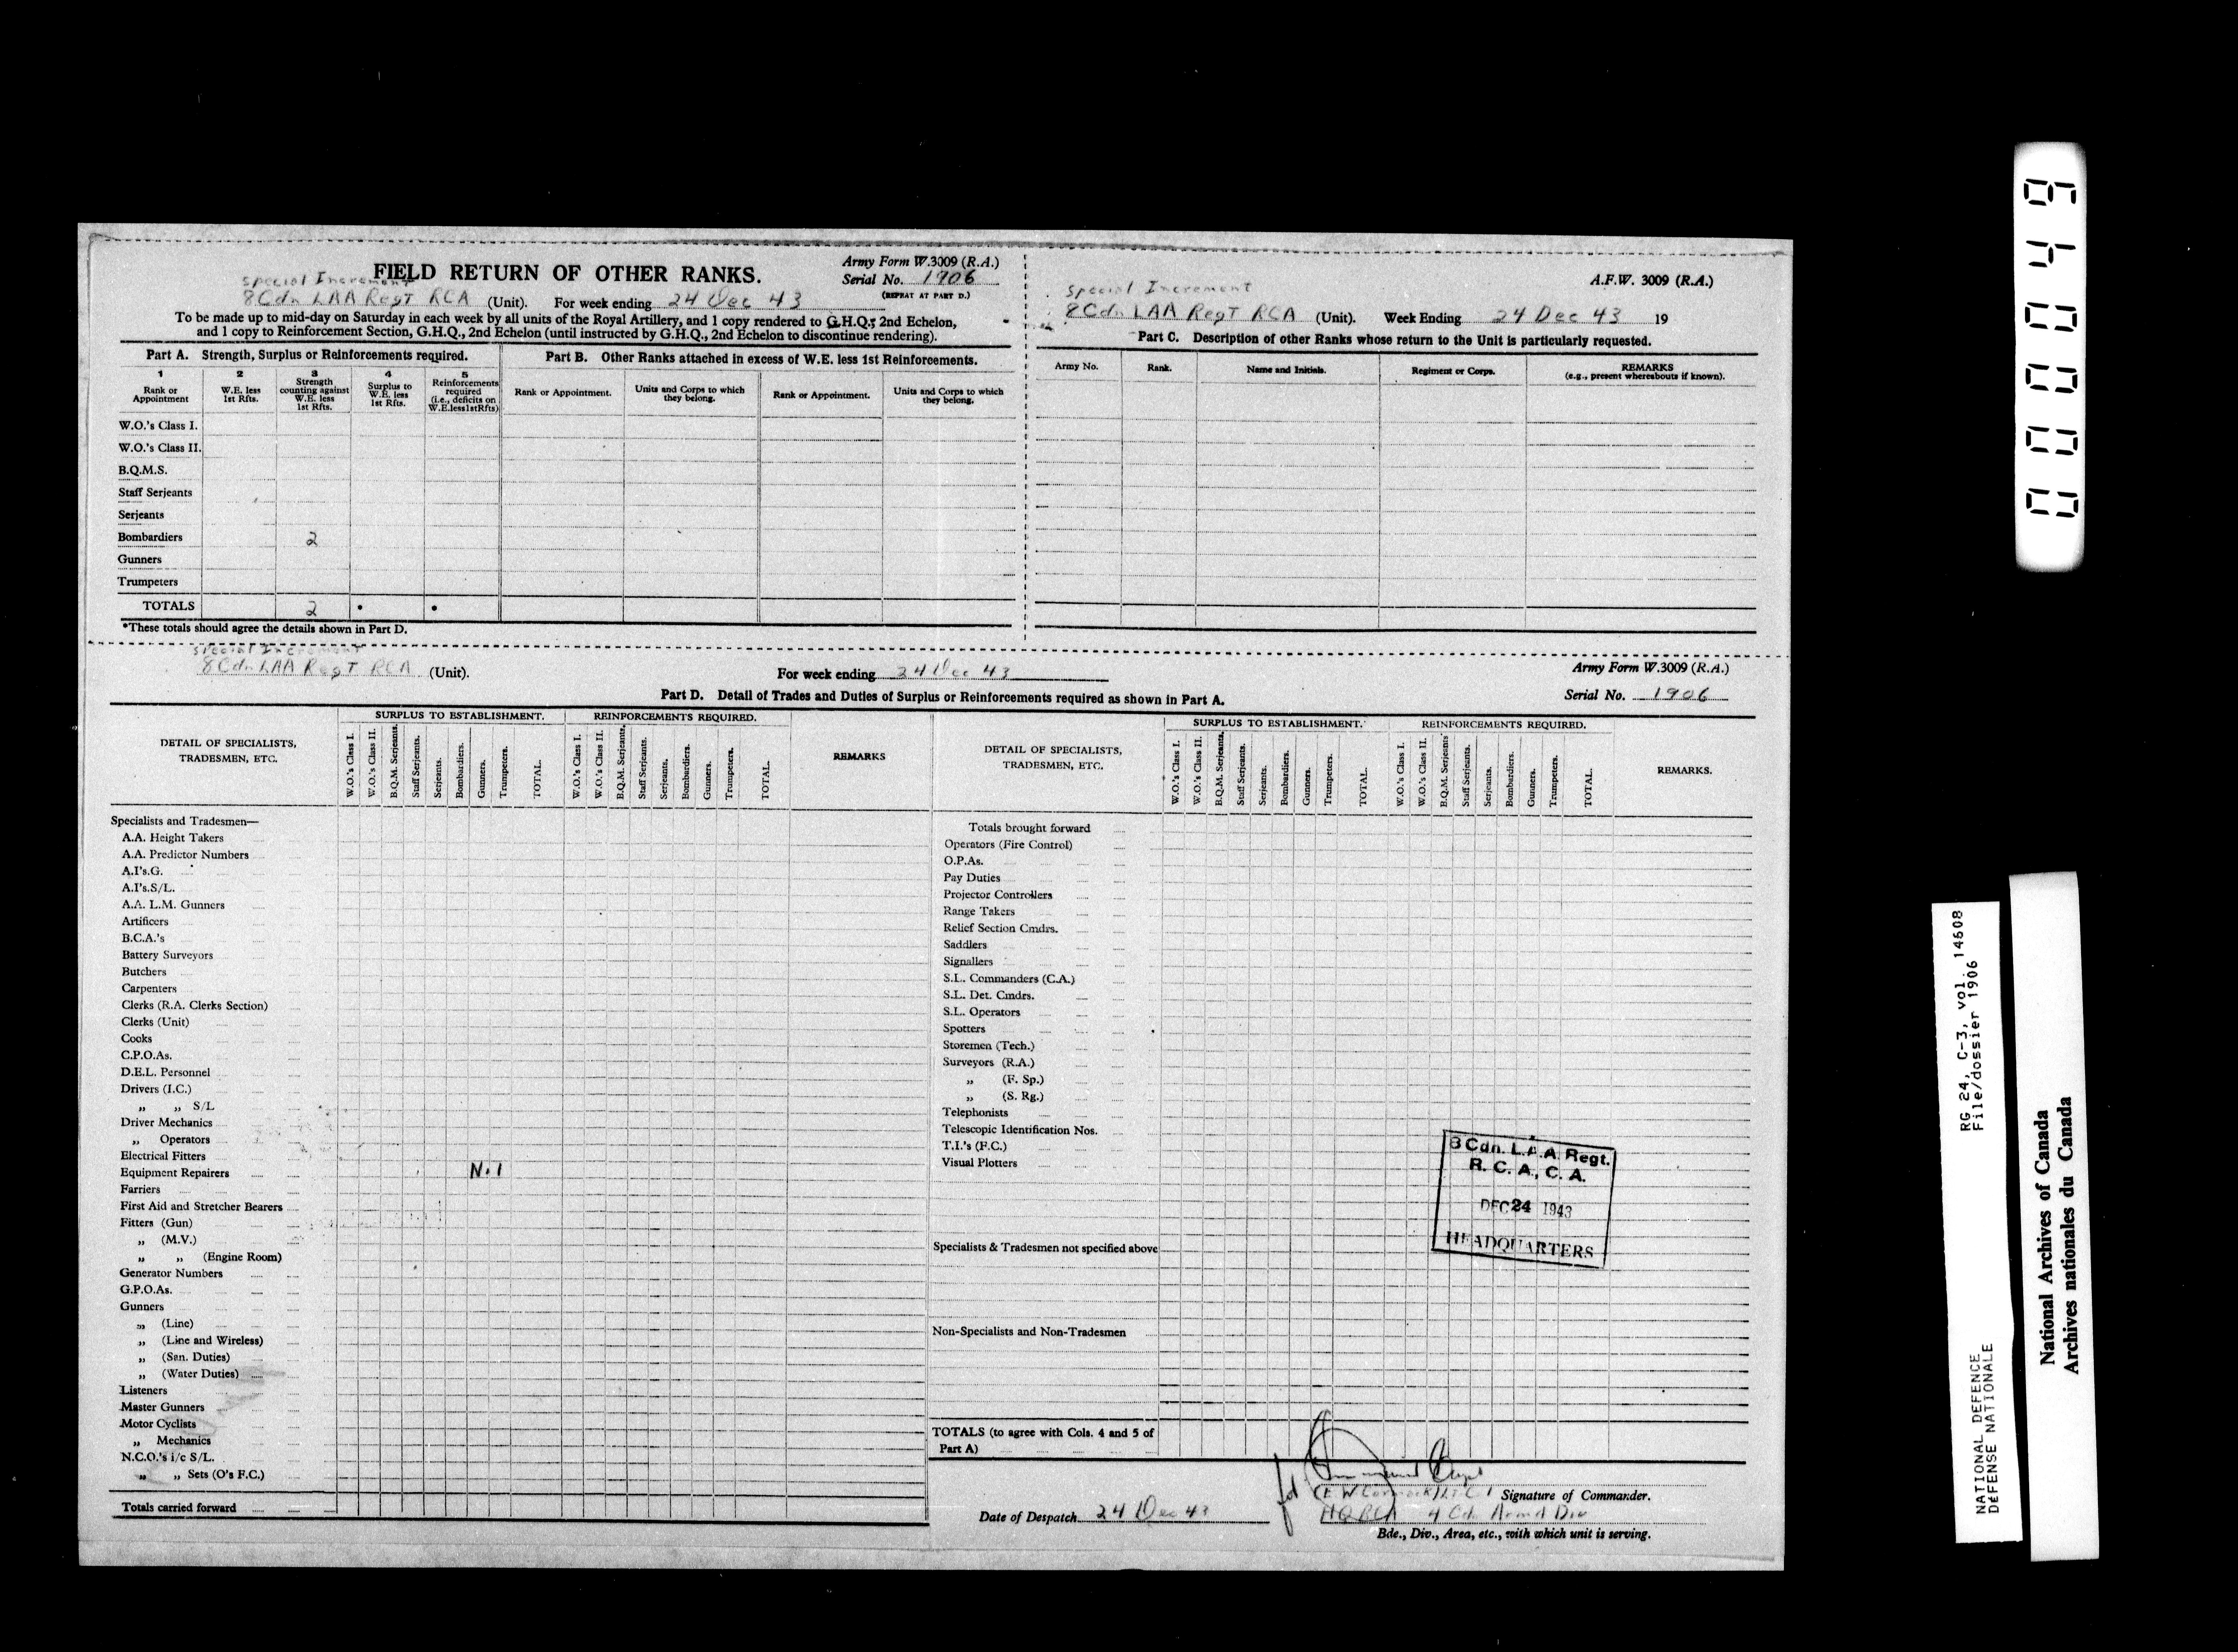 FIELD RETURN OF OTHER RANKS.
Army Form W.3009 (R.A.)
Serial No. 1906
(REPEAT AT PART D.)
Special Increment
8 Cdn LAA Regt RCA (Unit). For week ending 24 Dec 43
To be made up to mid-day on Saturday in each week by all units of the Royal Artillery, and 1 copy rendered to G.H.Q., 2nd Echelon,
and 1 copy to Reinforcement Section, G.H.Q., 2nd Echelon (until instructed by G.H.Q., 2nd Echelon to discontinue rendering).
Part A. Strength, Surplus or Reinforcements required.
1 Rank or Appointment
2 W.E. less 1st Rfts.
3 Strength counting against W.E. less 1st Rfts.
4 Surplus to W.E. less 1st Rfts.
5 Reinforcements required (i.e., deficits on W.E.less1stRfts)
W.O.'s Class I.
W.O.'s Class II.
B.Q.M.S.
Staff Serjeants
Serjeants
Bombardiers 2
Gunners
Trumpeters
TOTALS 2 * *
*These totals should agree the details shown in Part D.
Part B. Other Ranks attached in excess of W.E. less 1st Reinforcements.
Rank or Appointment. Units and Corps to which they belong. Rank or Appointment. Units and Corps to which they belong.
A.F.W. 3009 (R.A.)
Special Increment
8 Cdn LAA Regt RCA (Unit). Week Ending 24 Dec 43 19
Part C. Description of other Ranks whose return to the Unit is particularly requested.
Army No. Rank. Name and Initials. Regiment or Corps. REMARKS
(e.g., present whereabouts if known).
Special Increment
8 Cdn LAA Regt RCA (Unit). For week ending 24 Dec 43
Army Form W.3009 (R.A.)
Serial No. 1906
Part D. Detail of Trades and Duties of Surplus or Reinforcements required as shown in Part A.
DETAIL OF SPECIALISTS, TRADESMEN, ETC.
SURPLUS TO ESTABLISHMENT. REINFORCEMENTS REQUIRED. REMARKS
W.O.'s Class I. W.O.'s Class II. B.Q.M. Serjeants. Staff Serjeants. Serjeants. Bombardiers. Gunners. Trumpeters. TOTAL.
W.O.'s Class I. W.O.'s Class II. B.Q.M. Serjeants. Staff Serjeants. Serjeants. Bombardiers. Gunners. Trumpeters. TOTAL.
Specialists and Tradesmen—
A.A. Height Takers
A.A. Predictor Numbers
A.I's.G.
A.I's.S/L.
A.A. L.M. Gunners
Artificers
B.C.A.'s
Battery Surveyors
Butchers
Carpenters
Clerks (R.A. Clerks Section)
Clerks (Unit)
Cooks
C.P.O.As.
D.E.L. Personnel
Drivers (I.C.)
„ „ S/L
Driver Mechanics
„ Operators
Electrical Fitters
Equipment Repairers Nil
Farriers
First Aid and Stretcher Bearers
Fitters (Gun)
„ (M.V.)
„ „ (Engine Room)
Generator Numbers
G.P.O.As.
Gunners
„ (Line)
„ (Line and Wireless)
„ (San. Duties)
„ (Water Duties)
Listeners
Master Gunners
Motor Cyclists
„ Mechanics
N.C.O.'s i/c S/L.
„ „ Sets (O's F.C.)
Totals carried forward
DETAIL OF SPECIALISTS, TRADESMEN, ETC.
SURPLUS TO ESTABLISHMENT. REINFORCEMENTS REQUIRED. REMARKS.
W.O.'s Class I. W.O.'s Class II. B.Q.M. Serjeants. Staff Serjeants. Serjeants. Bombardiers. Gunners. Trumpeters. TOTAL.
W.O.'s Class I. W.O.'s Class II. B.Q.M. Serjeants Staff Serjeants. Serjeants. Bombardiers. Gunners. Trumpeters. TOTAL.
Totals brought forward
Operators (Fire Control)
O.P.As.
Pay Duties
Projector Controllers
Range Takers
Relief Section Cmdrs.
Saddlers
Signallers
S.L. Commanders (C.A.)
S.L. Det. Cmdrs.
S.L. Operators
Spotters
Storemen (Tech.)
Surveyors (R.A.)
„ (F. Sp.)
„ (S. Rg.)
Telephonists
Telescopic Identification Nos.
T.I.'s (F.C.)
Visual Plotters
Specialists & Tradesmen not specified above
Non-Specialists and Non-Tradesmen
TOTALS (to agree with Cols. 4 and 5 of
Part A)
8 Cdn. L.A.A. Regt.
R. C. A., C. A.
DEC 24 1943
HEADQUARTERS
Signature of Commander.
Date of Despatch 24 Dec 43
HQ RCA 4 Cdn Armd Div
Bde., Div., Area, etc., with which unit is serving.
000049
RG 24, C-3, vol. 14608
File/dossier 1906
NATIONAL DEFENCE
DÉFENSE NATIONALE
National Archives of Canada
Archives nationales du Canada